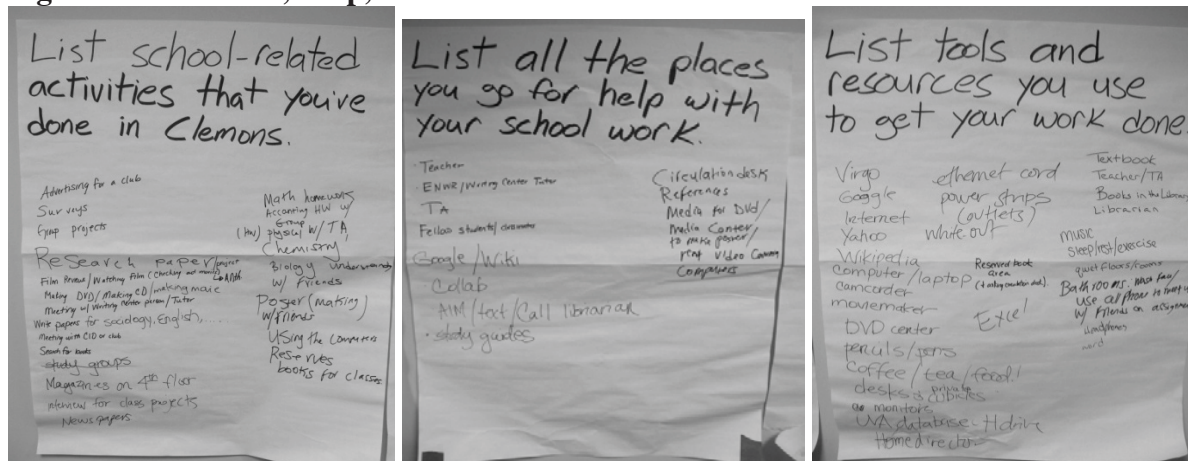 List school-related
activities that you've
done in Clemons.
Advertising for a club
Surveys
Group projects
Research paper/project
Film Review/Watching Film (checking out movie)
Making DVD/Making CD/making movie
Meeting w/ Writing Center person/Tutor
Write papers for sociology, English, ....
Meeting with CIO or club
Search for books
study groups
Magazines on 4th floor
interviews for class projects
Newspapers
Math homework
Accounting HW w/
Group
(HW) physics w/ TA,
Chemistry
Biology
w/ Friends
Poster (making)
w/friends
Using the computers
Reserves
books for classes
List all the places
you go for help with
your school work.
· Teacher
· ENWR/Writing Center Tutor
TA
Fellow students/
Google/Wiki
· Collab
AIM/text/Call librarian
· study guides
Circulation desk
References
Media for DVD/
Media Center
to make poster/
rent video Camera
Computers
List tools and
resources you use
to get your work done.
Virgo
Google
Internet
Yahoo
Wikipedia
computer/laptop
camcorder
moviemaker
DVD center
pencils/pens
coffee/tea/food!
desks & private cubicles
monitors
UVA database - H drive
Home directory
ethernet cord
power strips
(outlets)
white out
Reserved book
area
Excel
Textbook
Teacher/TA
Books in the Library
Librarian
music
sleep/rest/exercise
quiet floors/rooms
Bathrooms.
use cell phone to
w/ friends on assignment
headphones